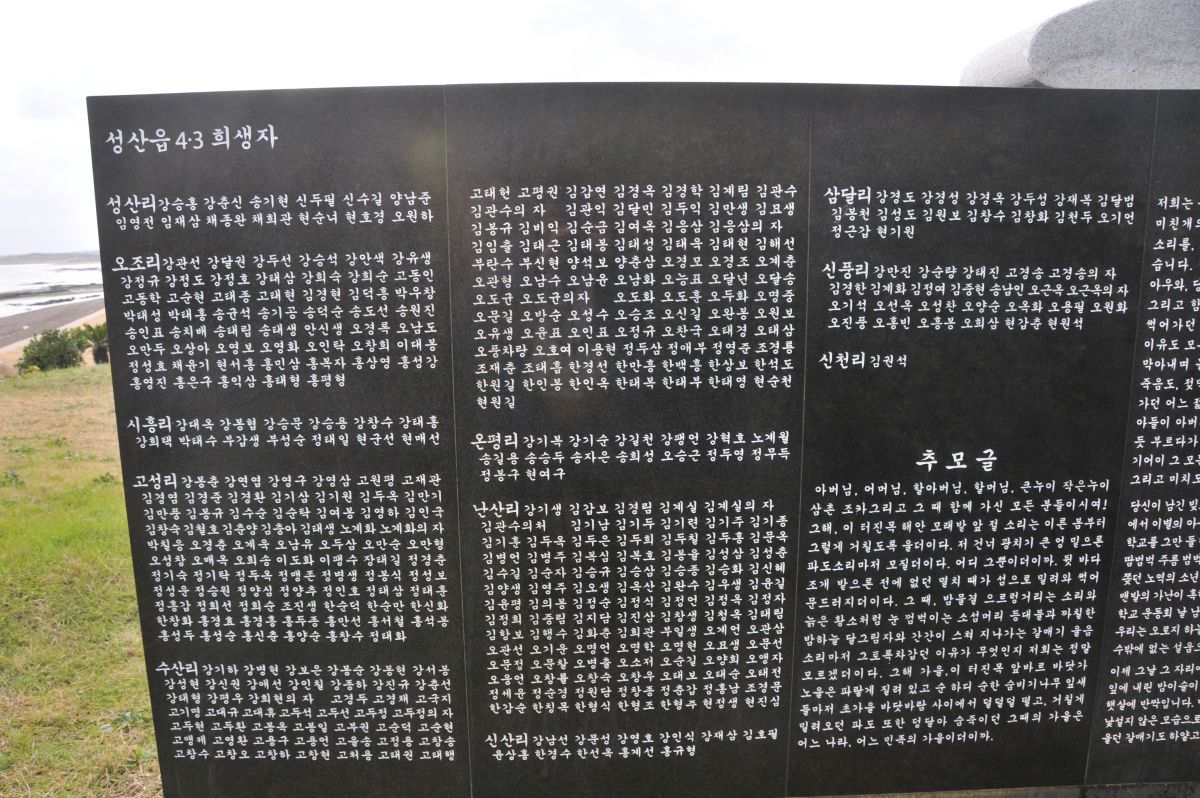 성산읍 4·3 희생자
성산리 강승흥 강춘신 송기현 신두필 신수길 양남준
임영전 임재삼 채종완 채희관 현순녀 현호경 오원하
오조리 강관선 강달권 강두선 강승석 강안색 강유생
강정규 강정도 강정호 강태삼 강희숙 강희순 고동인
고동학 고순현 고태종 고태현 김경현 김덕흥 박우창
박태성 박태홍 송군석 송기공 송덕순 송도선 송원진
송인표 송치배 송태림 송태생 안신생 오경록 오남도
오만두 오상아 오영보 오영화 오인탁 오창희 이대봉
정성효 채윤기 현서흥 홍민삼 홍목자 홍상영 홍성강
홍영진 홍은규 홍익삼 홍태형 홍평형
시흥리 강대옥 강봉협 강승문 강승용 강창수 강태홍
강희택 박태수 부감생 부성순 정태일 현군선 현매선
고성리 강봉춘 강연염 강영구 강영삼 고원평 고재관
김경염 김경준 김경환 김기삼 김기원 김두옥 김만기
김만풍 김봉규 김수순 김순탁 김여몽 김영하 김인국
김창숙 김철호 김춘양 김충아 김태생 노계화 노계화의 자
박원등 오경춘 오계옥 오남유 오두삼 오만순 오만형
오성창 오매옥 오희승 이도화 이팽수 장태길 정경춘
정기숙 정기탁 정두옥 정맹존 정병생 정봉식 정성보
정성운 정승원 정양심 정양추 정인호 정태삼 정태흥
정홍감 정희선 정희순 조진생 한순덕 한순만 한신화
한창화 홍경효 홍경흥 홍두종 홍만선 홍서철 홍석봉
홍성두 홍성순 홍신춘 홍양순 홍창수 정태화
수산리 강기하 강병현 강보은 강봉순 강봉현 강서몽
강성현 강신권 강애선 강인월 강종하 강진규 강춘선
강태형 강평우 강희현의 자 고경두 고경재 고국지
고기명 고대규 고대휴 고두석 고두선 고두정 고두정의 자
고두현 고두환 고봉옥 고봉일 고부권 고순덕 고순현
고앵계 고영환 고용규 고용언 고을송 고정용 고창송
고창수 고창오 고창하 고창현 고처용 고태권 고태행
고태헌 고평권 김감연 김경옥 김경학 김계림 김관수
김관수의 자 김관익 김달민 김두익 김만생 김묘생
김봉규 김비익 김순금 김여옥 김응삼 김응삼의 자
김일출 김태근 김태봉 김태성 김태욱 김태현 김해선
부란수 부신현 양석보 양춘삼 오경모 오경조 오계춘
오관형 오남수 오남윤 오남화 오능표 오달년 오달송
오도균 오도균의자 오도화 오도훈 오두화 오명중
오문길 오방순 오성수 오승조 오신길 오완봉 오원보
오유생 오윤표 오인표 오정규 오찬국 오태경 오태삼
오풍차랑 오호여 이용현 정두삼 정애부 정영준 조경룡
조재춘 조태흠 한경선 한만흥 한백흥 한상보 한석도
한원길 한인봉 한인옥 한태복 한태부 한태영 현순천
현원길
온평리 강기복 강기순 강길천 강팽언 강혁호 노계월
송길용 송승두 송자은 송희성 오승근 정두영 정무득
정봉구 현여구
난산리 강기생 김갑보 김경림 김계실 김계실의 자
김관수의처 김기남 김기두 김기련 김기주 김기종
김기훈 김두옥 김두은 김두희 김두칠 김두홍 김문옥
김병언 김병주 김복심 김복호 김봉을 김성삼 김성춘
김수길 김순자 김승규 김승삼 김승종 김승화 김신혜
김양생 김영주 김오생 김옥산 김완수 김우생 김윤길
김윤평 김의봉 김정순 김정식 김정언 김정옥 김정자
김정희 김중림 김지담 김진삼 김창생 김청옥 김태림
김항보 김행수 김화춘 김희관 부일생 오계언 오관삼
오관선 오기운 오명언 오명학 오명현 오묘생 오문선
오문정 오문찰 오병출 오소저 오순길 오양희 오앵자
오웅언 오창률 오창숙 오창우 오태보 오태순 오태전
정세윤 정순경 정원담 정창종 정춘감 정흥남 조경문
한감순 한칭록 한형식 한형조 한형주 현정생 현진심
신산리 강남선 강문성 강영호 강인식 강재삼 김호필
윤상흥 한경수 한선옥 홍계선 홍규형
삼달리 강경도 강경성 강경옥 강두성 강재복 김달범
김봉천 김성도 김원보 김창수 김창화 김천두 오기언
정근감 현기원
신풍리 강만진 강순량 강태진 고경송 고경송의 자
김경한 김계화 김정여 김중현 송남인 오근옥 오근옥의 자
오기석 오선옥 오성찬 오양순 오옥화 오용필 오원화
오진풍 오흥빈 오흥봉 오희삼 현갑춘 현원석
신천리 김권석
추 모 글
아버님, 어머님, 할아버님, 할머님, 큰누이 작은누이
삼촌 조카그리고 그 때 함께 가신 모든 분들이시여!
그해, 이 터진목 해안 모래밭 앞 질 소리는 이른 봄부터
그렇게 거칠도록 울더이다. 저 건너 광치기 큰 엉 밑으론
파도소리마저 모질더이다. 어디 그뿐이더이까. 뒷 바다
조개 밭으론 전에 없던 멸치 떼가 섬으로 밀려와 썩어
문드러지더이다. 그 때, 밤물결 으르렁거리는 소리와
늙은 황소처럼 눈 껌벅이는 소섬머리 등대불과 하질한
밤하늘 달그림자와 간간이 스쳐 지나가는 갈매기 울음
소리마저 그토록차갑던 이유가 무엇인지 저희는 정말
모르겠더이다. 그해 가을, 이 터진목 앞바르 바닷가
노을은 파랗게 질려 있고 순 하디 순한 숨비기나무 잎새
들마저 초가을 바닷바람 사이에서 덜덜덜 떨고, 거칠게
밀려오던 파도 또한 덩달아 숨죽이던 그때의 가을은
어느 나라, 어느 민족의 가을이더이까.
저희는
미친개의
소리를
습니다.
아우와,
그리고 함
썩어가던
이유도 모
막아내며
죽음도, 젖먹
가던 어느 젊
아들이 아버
듯 부르다가
기어이 그 모든
그리고 미치도
당신이 남긴 빛
에서 이별의 아
학교를 그만 둘
땀범벅 주름 범벅
쫒던 노역의 소년
맨발의 가난이 혹한
학교 운동회 날 남
우리는 오로지 하늘
수밖에 없는 설움으
이제 그날 그 자리
잎에 내린 밤이슬이
햇살에 반짝입니다.
낯설지 않은 모습으로
울던 갈매기도 하얗고